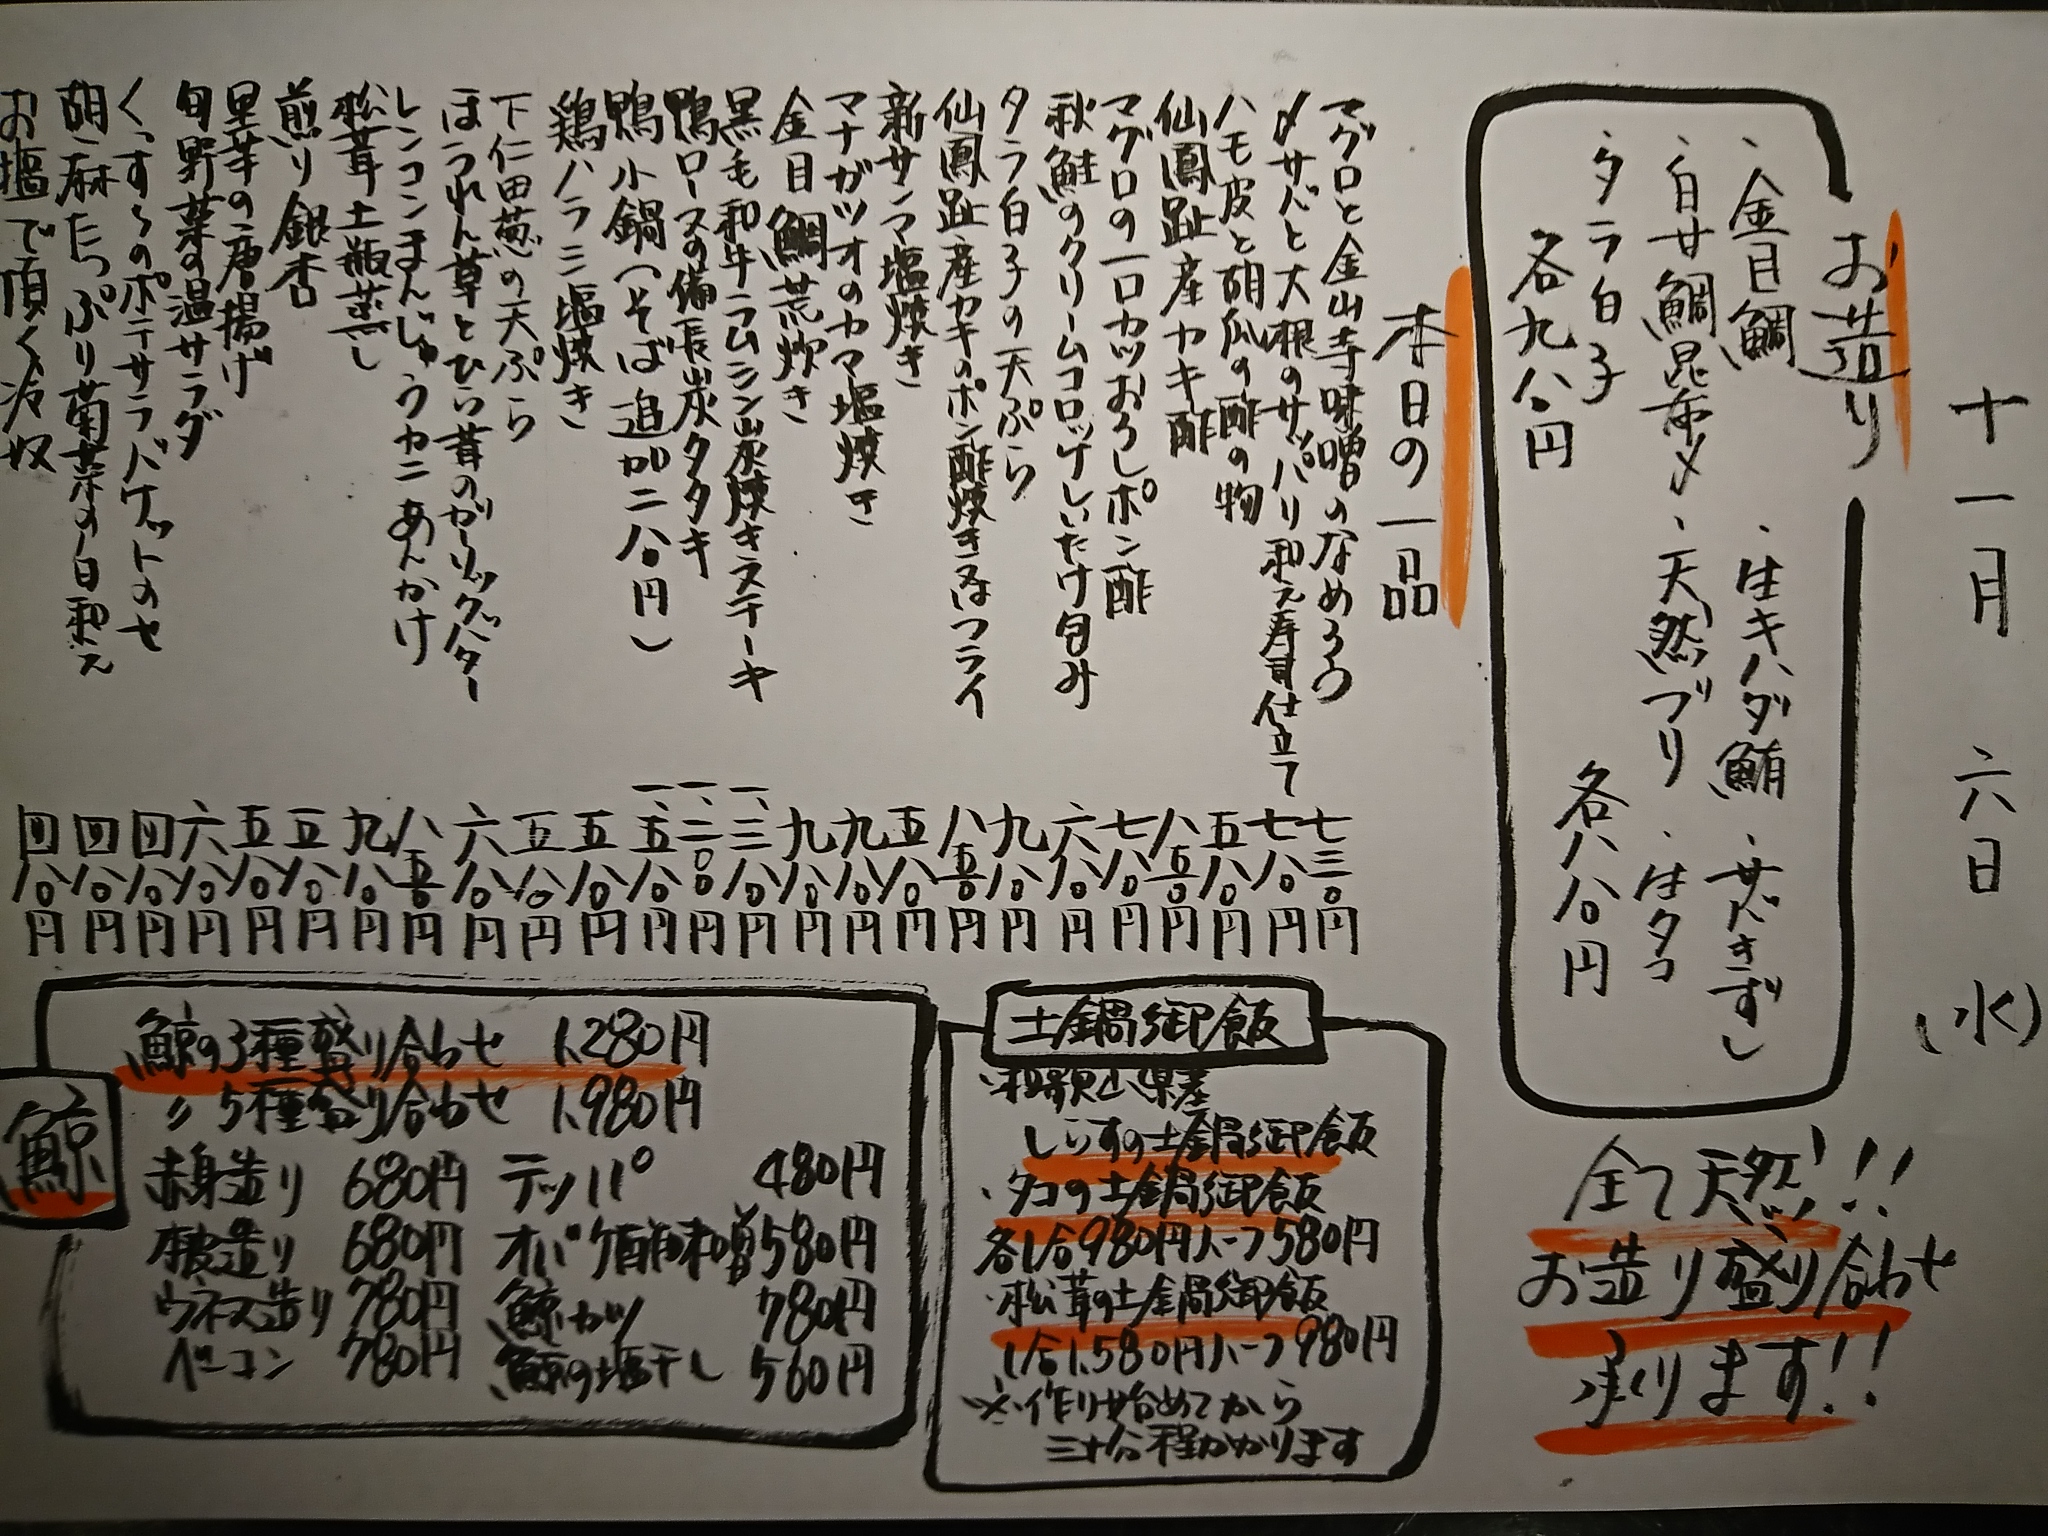 十一月 六日 (水)
お造り
・金目鯛 ・生キハダ鮪 ・サバきずし
・白甘鯛昆布〆 ・天然ブリ ・生タコ
・タラ白子
各八八〇円
各九八〇円
全て天然!!
お造り盛り合わせ
承ります!!
本日の一品
マグロと金山寺味噌のなめろう 七三〇円
〆サバと大根のサッパリ和え寿司仕立て 七八〇円
ハモ皮と胡瓜の酢の物 五八〇円
仙鳳趾産カキ酢 八五〇円
マグロの一口カツおろしポン酢 七八〇円
秋鮭のクリームコロッケしいたけ包み 六八〇円
タラ白子の天ぷら 九八〇円
仙鳳趾産カキのポン酢焼き又はフライ 八五〇円
新サンマ塩焼き 五八〇円
マナガツオのカマ塩焼き 九八〇円
金目鯛荒炊き 九八〇円
黒毛和牛ラムシン炭焼きステーキ 一、三八〇円
鴨ロースの備長炭タタキ 一、二〇〇円
鴨小鍋(そば追加二八〇円) 一、五八〇円
鶏ハラミ塩焼き 五八〇円
下仁田葱の天ぷら 五八〇円
ほうれん草とひら茸のガーリックバター 六八〇円
レンコンまんじゅうカニあんかけ 八五〇円
松茸土瓶蒸し 九八〇円
煎り銀杏 五八〇円
里芋の唐揚げ 五八〇円
旬野菜の温サラダ 六八〇円
くっする のポテサラバケットのせ 四八〇円
胡麻たっぷり菊菜の白和え 四八〇円
お塩で頂く冷奴 四八〇円
土鍋御飯
・和歌山県産
しらすの土鍋御飯
・タコの土鍋御飯
各1合980円ハーフ580円
・松茸の土鍋御飯
1合1,580円ハーフ980円
※作り始めてから
三十分程かかります
鯨
鯨の3種盛り合わせ 1,280円
〃 5種盛り合わせ 1,980円
赤身造り 680円 テッパ 480円
本皮造り 680円 オバケ酢味噌 580円
ウネス造り 780円 鯨カツ 780円
ベーコン 780円 鯨の塩干し 560円